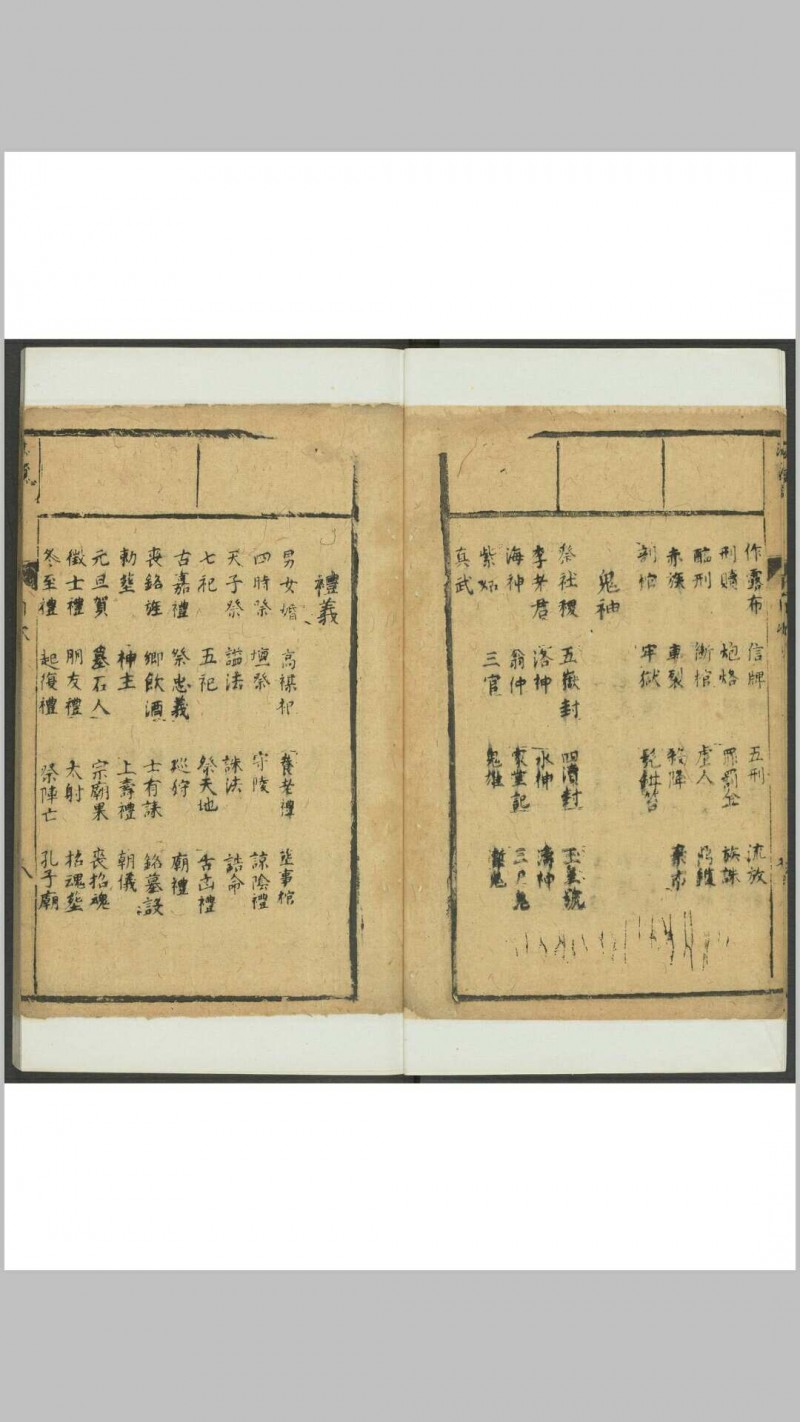 作露布 信牌 五刑 流放
刑賾 炮烙 罪罰金 族誅
酷刑 斷棺 虐人
赤族 車裂 殺降 棄市
牢獄
鬼神
祭社稷 五嶽封 四瀆封
李老君 洛神 水神 濤神
海神 翁仲 三尸鬼
紫姑 三官
真武
禮義
男女婚 高禖祀 養老禮
四時祭 壇祭 守陵 諒陰禮
天子祭 謚法 誄法 誥命
七祀 五祀 祭天地 吉凶禮
古嘉禮 祭忠義 巡狩 廟禮
喪銘旌 鄉飲酒 士有誄 銘墓誌
勅塟 神主 上壽禮 朝儀
元旦賀 墓石人 宗廟果 喪招魂
徵士禮 朋友禮 大射 招魂塟
冬至禮 起復禮 祭陣亡 孔子廟